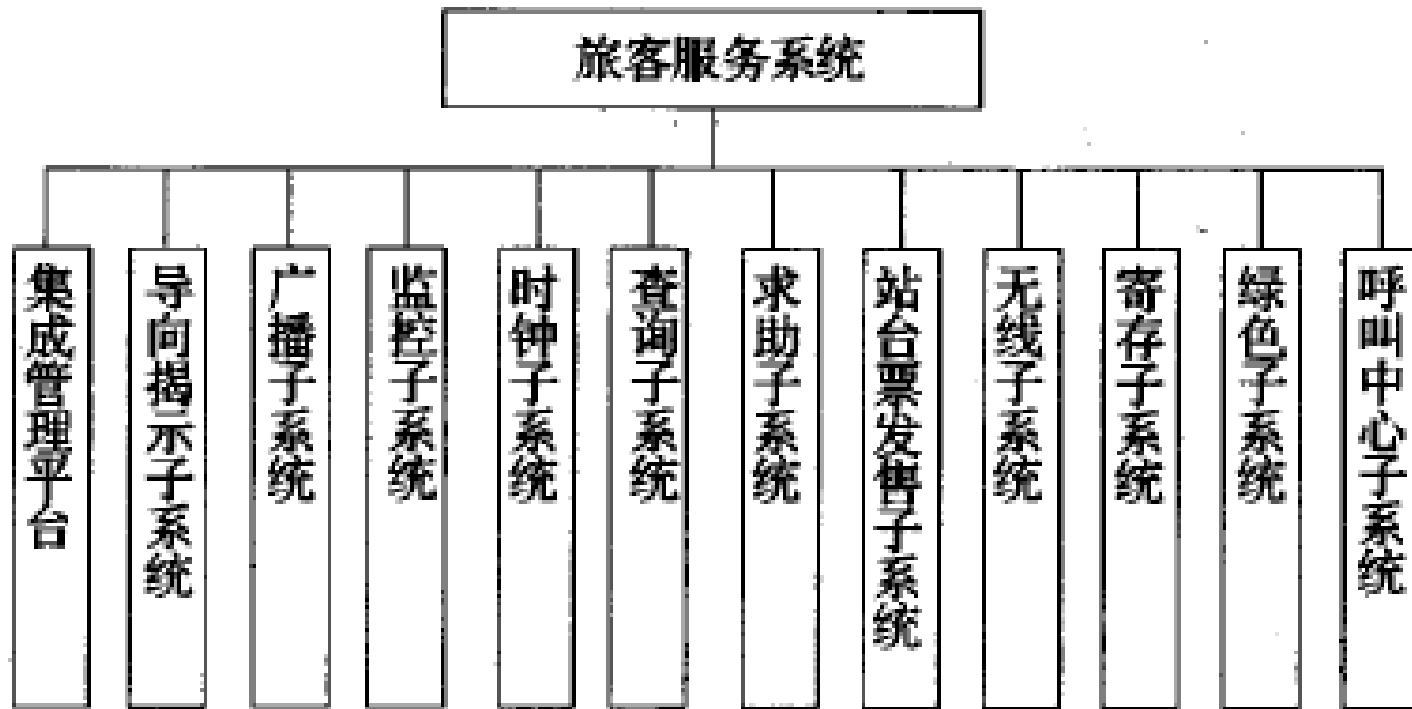 旅客服务系统
集成管理平台
导向揭示子系统
广播子系统
监控子系统
时钟子系统
查询子系统
求助子系统
站台票发售子系统
无线子系统
寄存子系统
绿色子系统
呼叫中心子系统